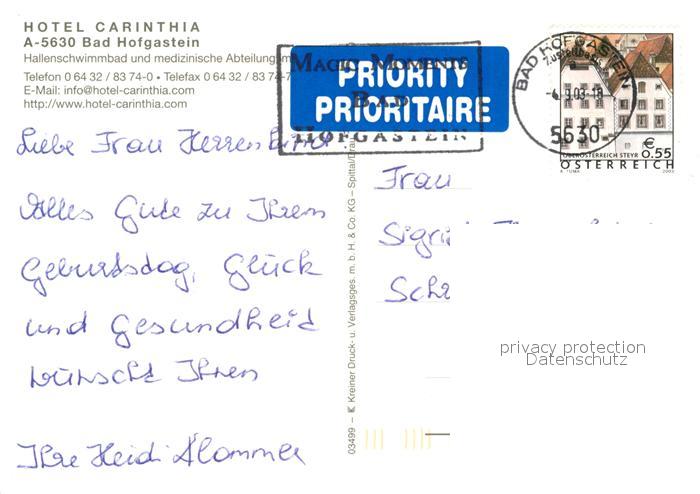 HOTEL CARINTHIA
A-5630 Bad Hofgastein
Hallenschwimmbad und medizinische Abteilung im
Telefon 0 64 32 / 83 74-0 • Telefax 0 64 32 / 83 74-7
E-Mail: info@hotel-carinthia.com
http://www.hotel-carinthia.com
MAGIC MOMENTS
BAD
HOFGASTEIN
PRIORITY
PRIORITAIRE
BAD HOFGASTEIN
03-18
5630
OBERÖSTERREICH STEYR
€ 0.55
ÖSTERREICH
2003
Liebe Frau
Alles Gute zu Ihrem
Geburtsdag, Glück
und Gesundheid
wünscht Ihnen
Ihre Heidi
03499 – Kreiner Druck- u. Verlagsges. m. b. H. & Co. KG – Spittal/Drau
Frau
privacy protection
Datenschutz